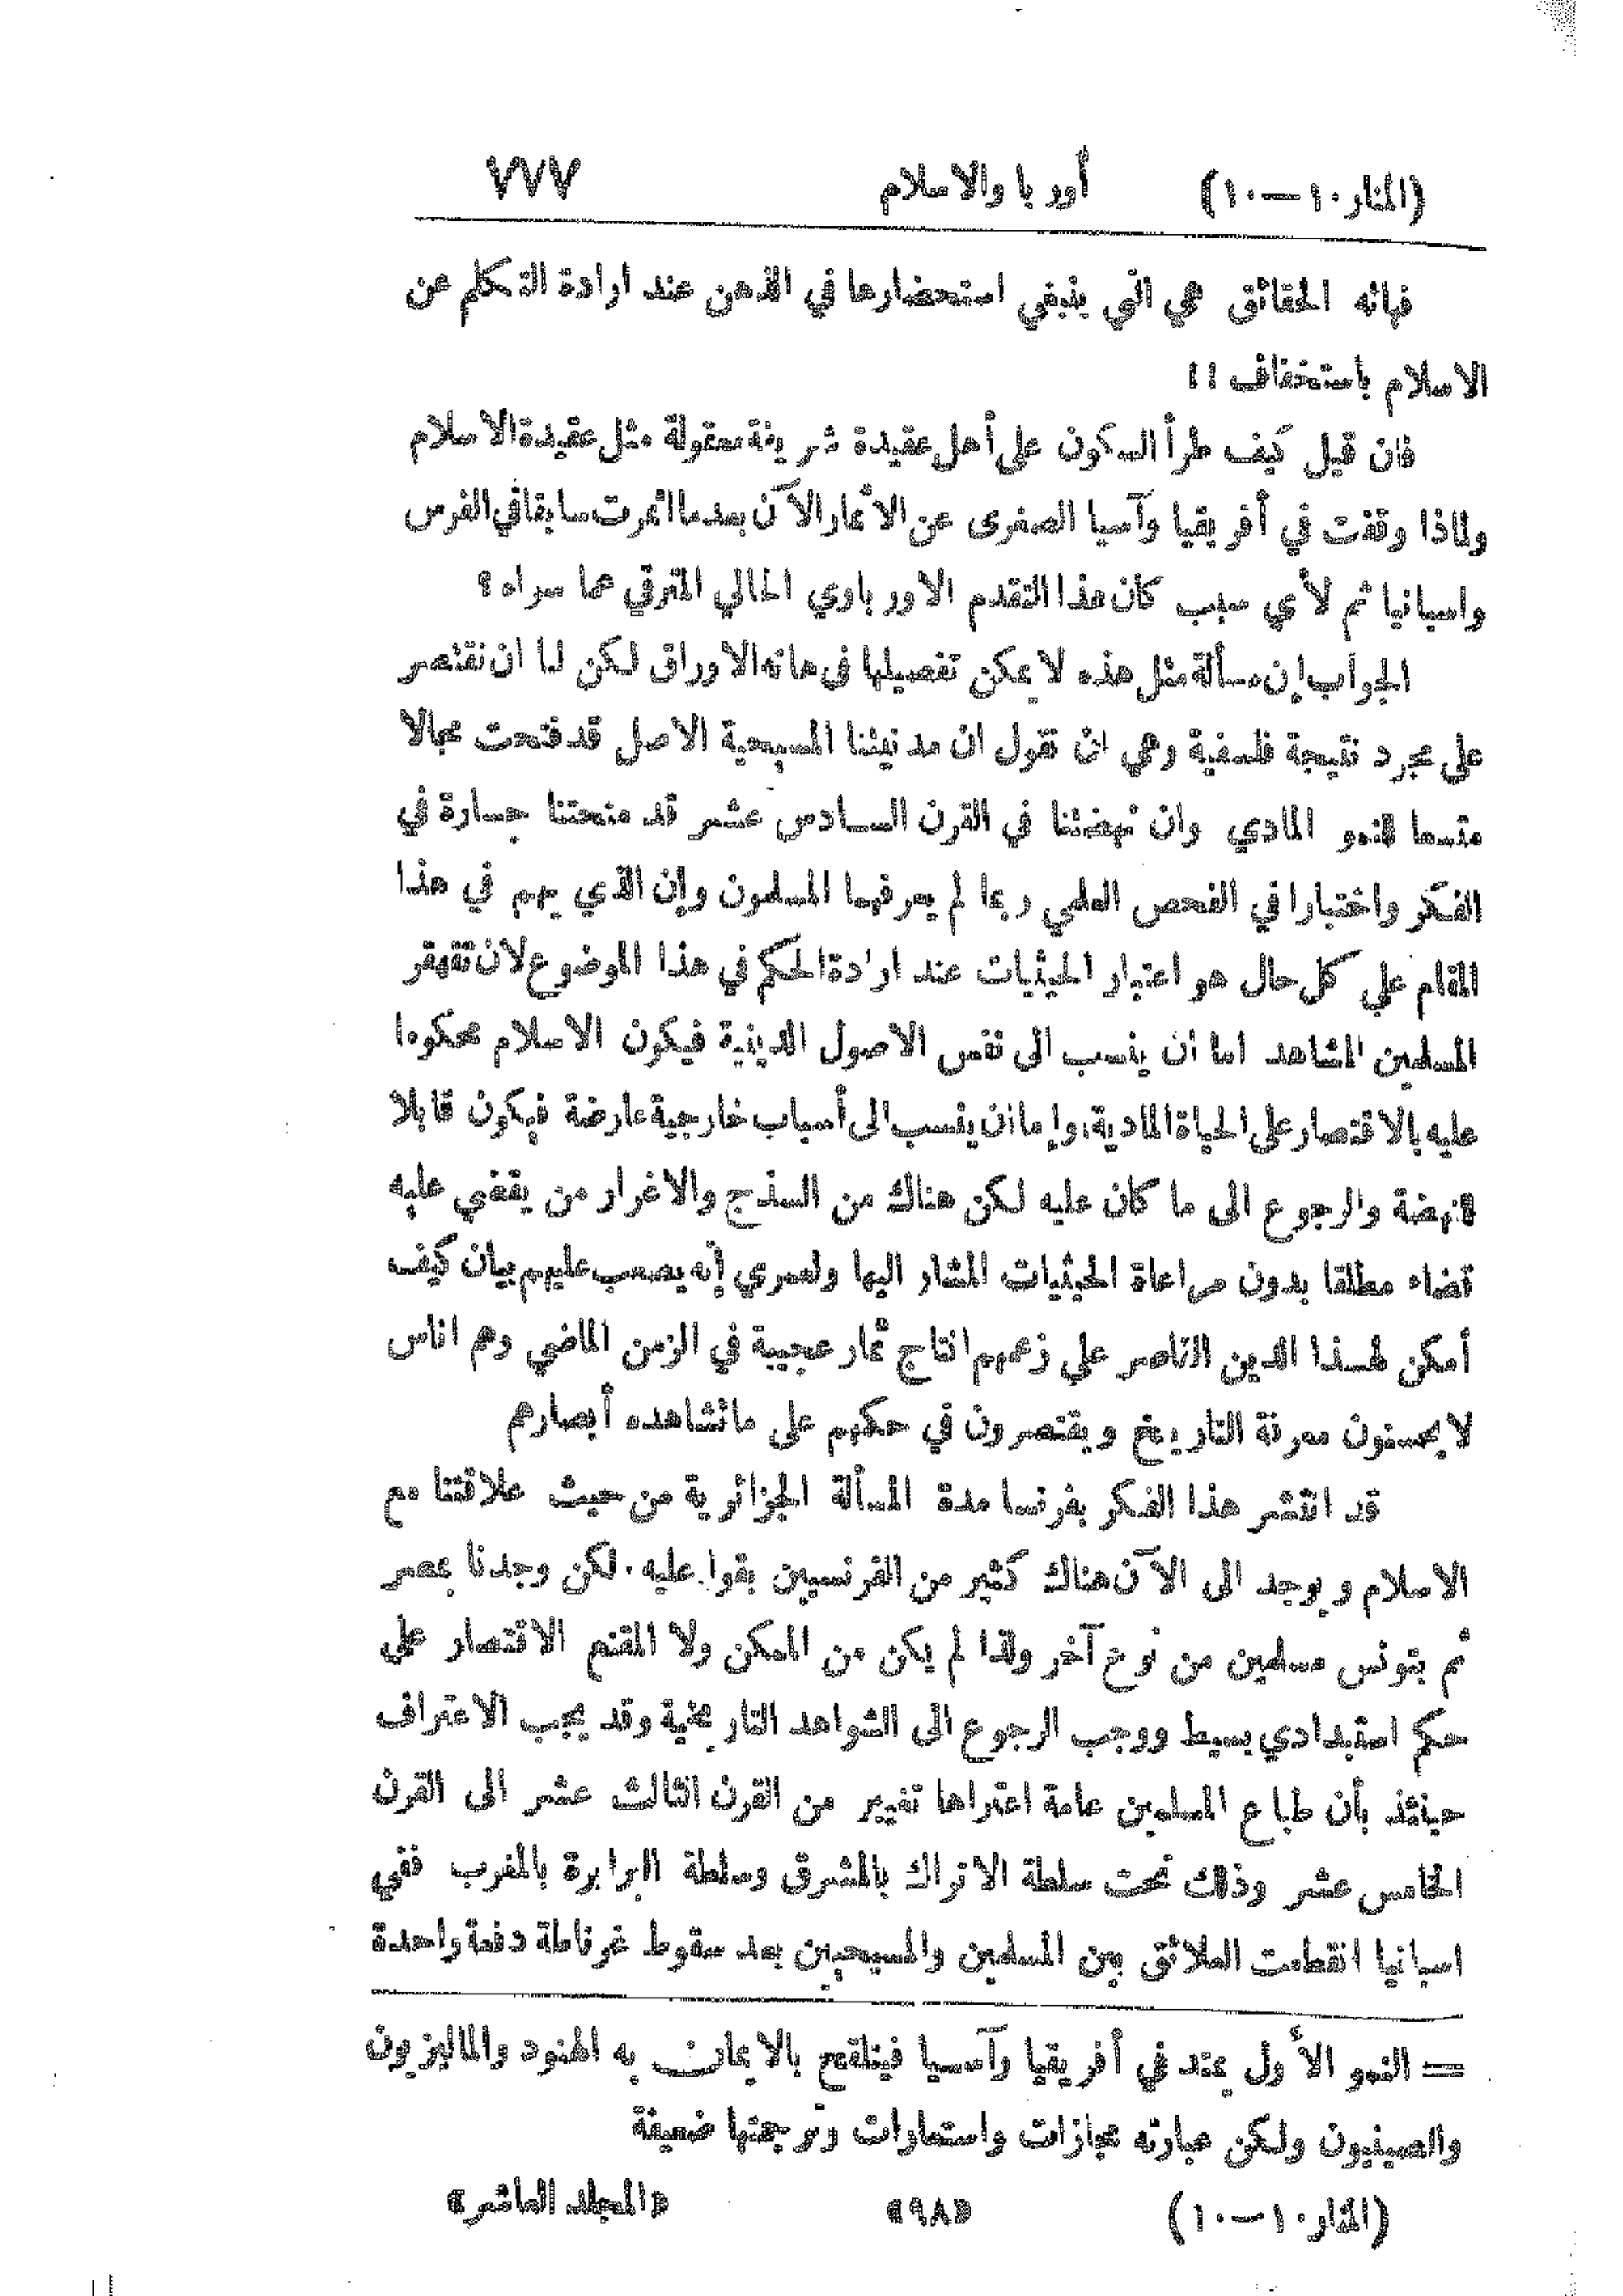 (المنار ١٠—١٠) أوربا والاسلام ٧٧٧
فهاته الحقائق هي التي ينبغي استحضارها في الذهن عند ارادة التكلم عن
الاسلام باستخفاف !!
فان قيل كيف طرأ السكون على أهل عقيدة شريفة معقولة مثل عقيدة الاسلام
ولماذا وقفت في أفريقيا وآسيا الصغرى عن الاثمار الآن بعدما اثمرت سابقا في الفرس
واسبانيا ثم لأي سبب كان هذا التقدم الاورباوي الحالي المترقي عما سراه ؟
الجواب إن مسألة مثل هذه لا يمكن تفصيلها في هاته الاوراق لكن لنا ان نقتصر
على مجرد نتيجة فلسفية وهي ان نقول ان مدنيتنا المسيحية الاصل قد فتحت مجالا
متسعا للنمو المادي وان نهضتنا في القرن السادس عشر قد منحتنا جسارة في
الفكر واختبارا في الفحص العلمي ربما لم يعرفهما المسلمون وإن الذي يهم في هذا
المقام على كل حال هو اعتبار الحيثيات عند ارادة الحكم في هذا الموضوع لان تقهقر
المسلمين المشاهد اما ان ينسب الى نفس الاصول الدينية فيكون الاسلام محكوما
عليه بالاقتصار على الحياة المادية، وإما ان ينسب الى أسباب خارجية عارضة فيكون قابلا
للنهضة والرجوع الى ما كان عليه لكن هناك من السذج والاغرار من يقضي عليه
قضاء مطلقا بدون مراعاة الحيثيات المشار اليها ولعمري إنه يصعب عليهم بيان كيف
أمكن لهذا الدين القاصر على زعمهم انتاج ثمار عجيبة في الزمن الماضي وهم اناس
لا يحسنون معرفة التاريخ ويقتصرون في حكمهم على ما تشاهده أبصارهم
قد انتشر هذا الفكر بفرنسا مدة المسألة الجزائرية من حيث علاقتنا مع
الاسلام ويوجد الى الآن هناك كثير من الفرنسيين بقوا عليه . لكن وجدنا بمصر
ثم بتونس مسلمين من نوع آخر ولذا لم يكن من الممكن ولا المقنع الاقتصار على
حكم استبدادي بسيط ووجب الرجوع الى الشواهد التاريخية وقد يجب الاعتراف
حينئذ بأن طباع المسلمين عامة اعتراها تغيير من القرن الثالث عشر الى القرن
الخامس عشر وذلك تحت سلطة الاتراك بالمشرق وسلطة البرابرة بالمغرب ففي
اسبانيا انقطعت العلائق بين المسلمين والمسيحيين بعد سقوط غرناطة دفعة واحدة
= النمو الأول يمتد في أفريقيا وآسيا فيتلقح بالايمان به الهنود والماليزيون
والصينيون ولكن عبارته مجازات واستعارات وترجمتها ضعيفة
(المنار ١٠—١٠) «٩٨» «المجلد العاشر»